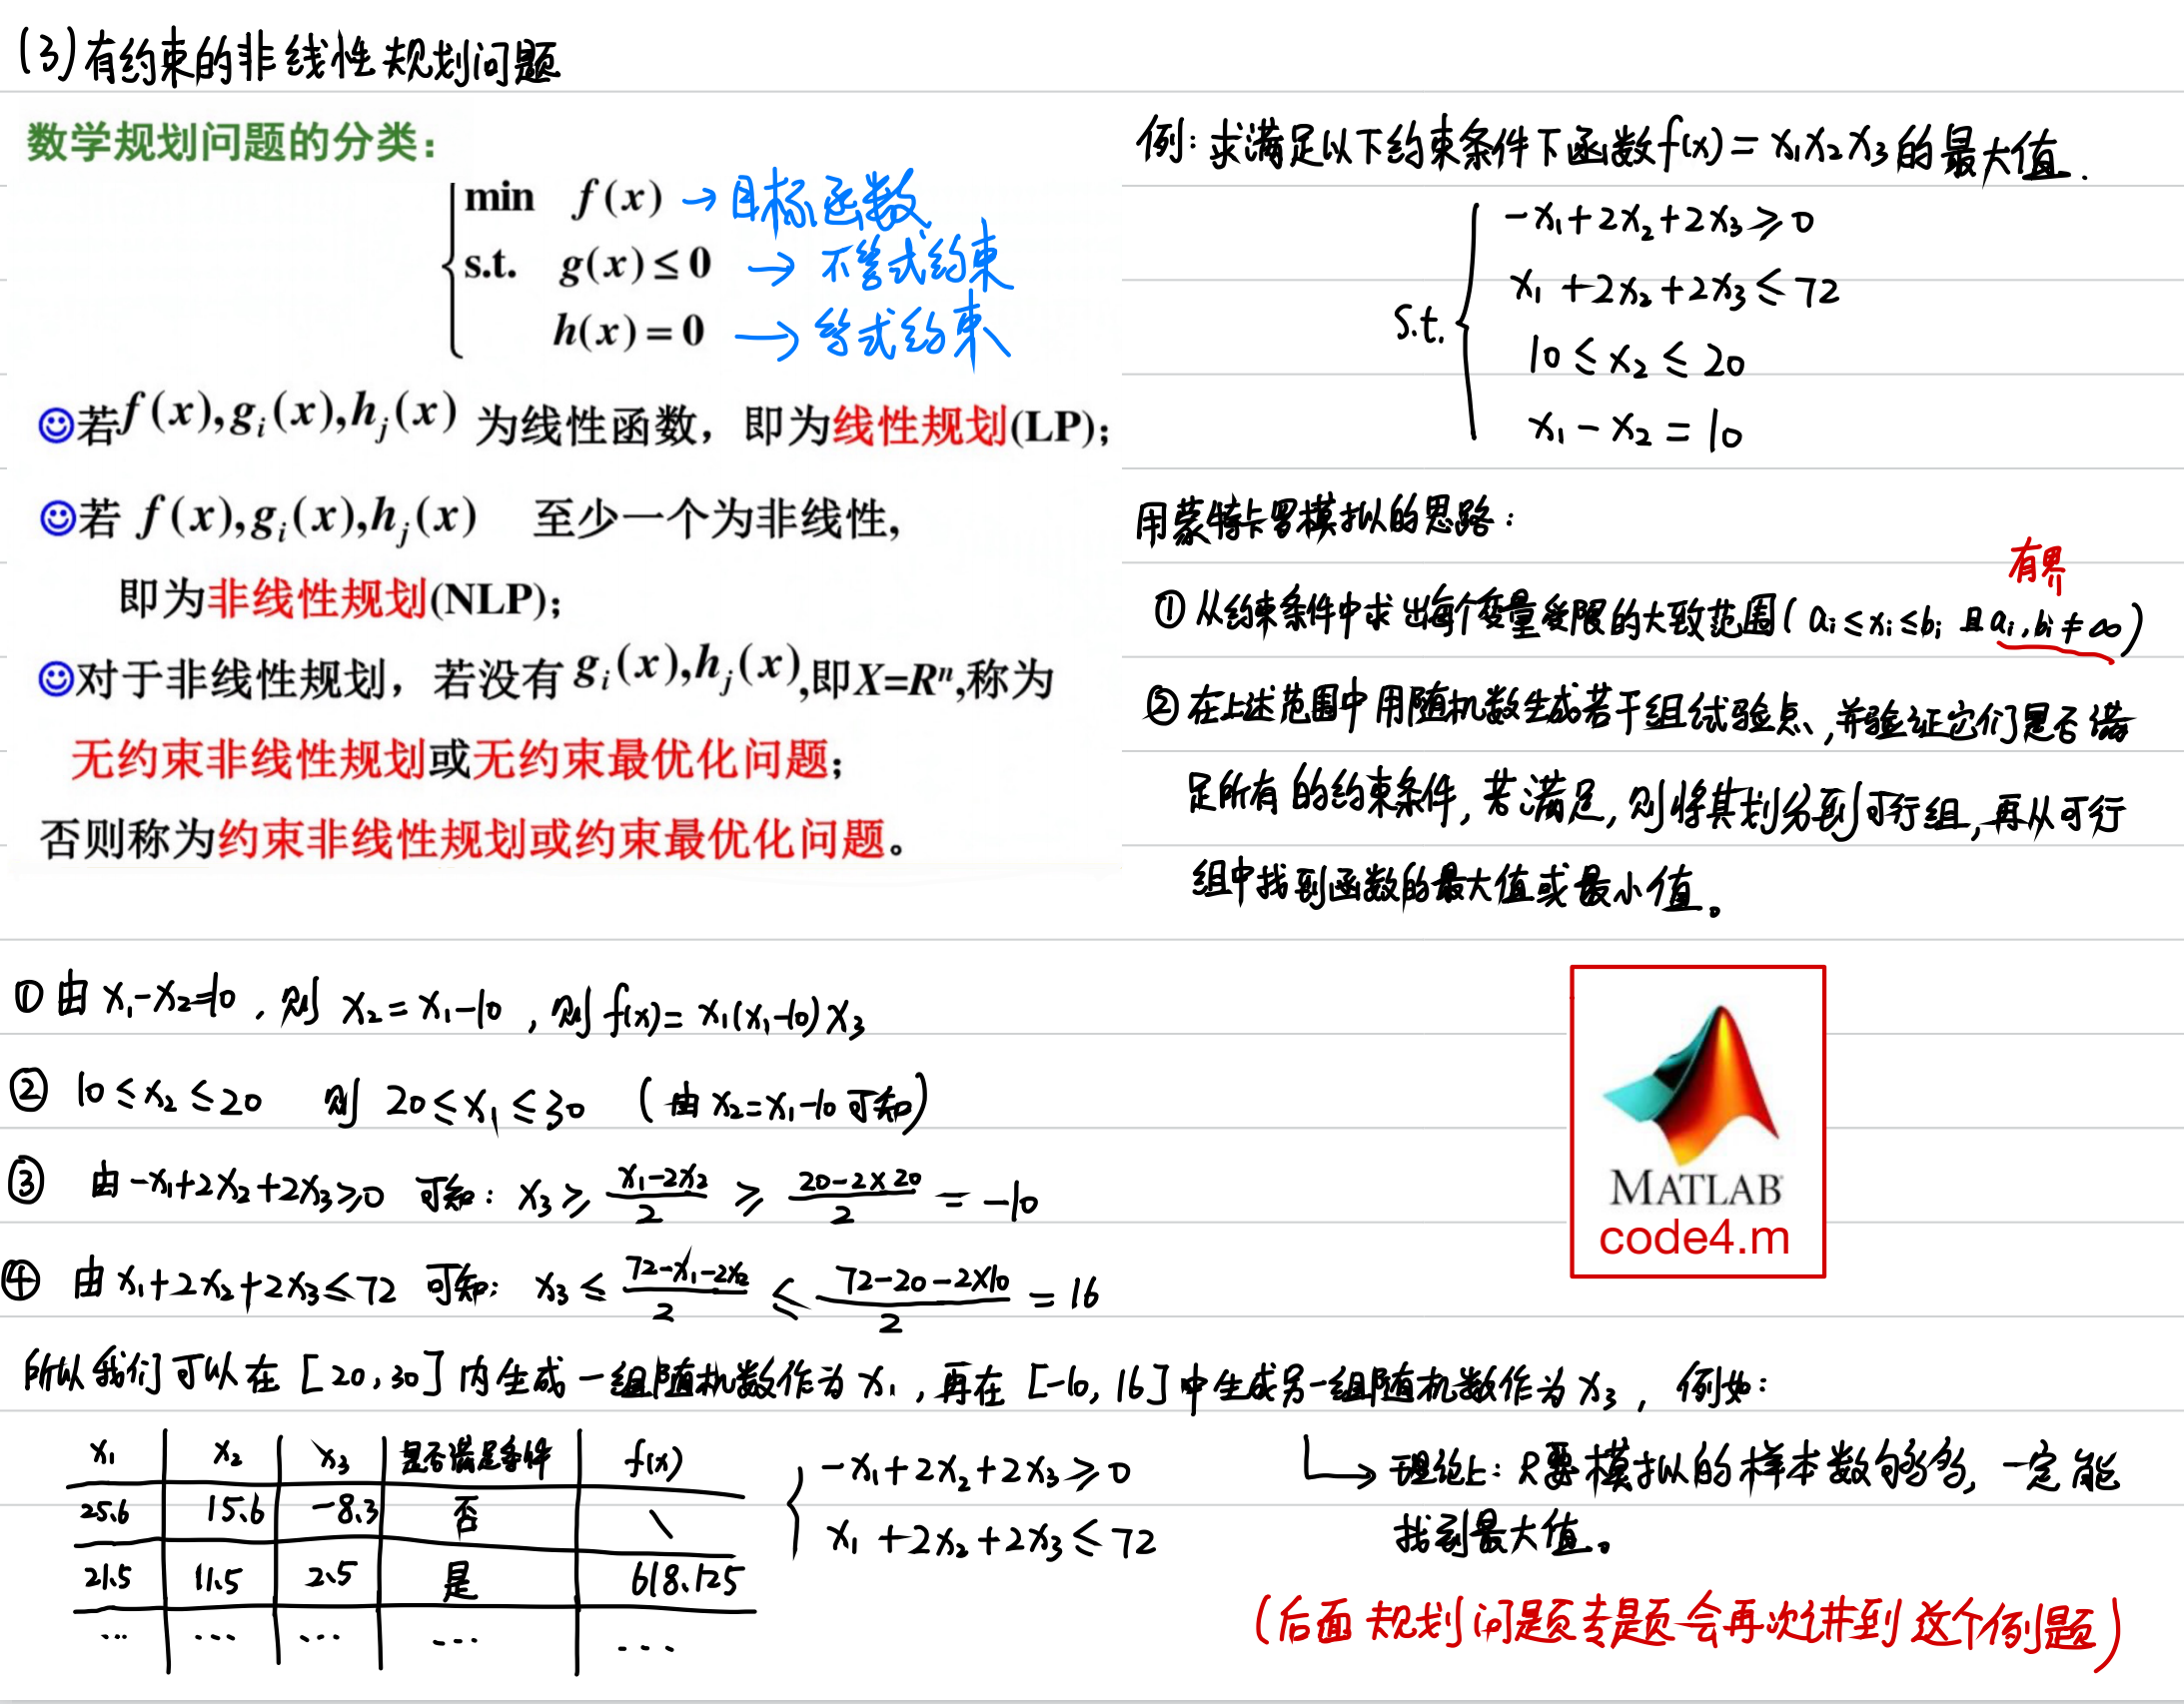 (3)有约束的非线性规划问题
数学规划问题的分类：
min f(x) → 目标函数
s.t. g(x) ≤ 0 → 不等式约束
h(x) = 0 → 等式约束
若 f(x), g_i(x), h_j(x) 为线性函数，即为线性规划(LP)；
若 f(x), g_i(x), h_j(x) 至少一个为非线性,
即为非线性规划(NLP)；
对于非线性规划，若没有 g_i(x), h_j(x),即X=Rⁿ,称为
无约束非线性规划或无约束最优化问题；
否则称为约束非线性规划或约束最优化问题。
例：求满足以下约束条件下函数f(x) = x₁x₂x₃的最大值.
s.t.
-x₁+2x₂+2x₃ ≥ 0
x₁+2x₂+2x₃ ≤ 72
10 ≤ x₂ ≤ 20
x₁ - x₂ = 10
用蒙特卡罗模拟的思路：
有界
① 从约束条件中求出每个变量受限的大致范围( a_i ≤ x_i ≤ b_i 且a_i, b_i ≠ ∞)
② 在上述范围中用随机数生成若干组试验点,并验证它们是否满
足所有的约束条件,若满足,则将其划分到可行组,再从可行
组中找到函数的最大值或最小值。
① 由 x₁-x₂=10，则 x₂= x₁-10，则 f(x)= x₁(x₁-10)x₃
② 10 ≤ x₂ ≤ 20 则 20 ≤ x₁ ≤ 30 (由 x₂=x₁-10 可知)
③ 由 -x₁+2x₂+2x₃≥0 可知：x₃ ≥ (x₁-2x₂)/2 ≥ (20-2×20)/2 = -10
④ 由 x₁+2x₂+2x₃≤72 可知：x₃ ≤ (72-x₁-2x₂)/2 ≤ (72-20-2×10)/2 = 16
MATLAB
code4.m
所以我们可以在 [20, 30] 内生成一组随机数作为 x₁，再在 [-10, 16] 中生成另一组随机数作为 x₃，例如：
x₁ x₂ x₃ 是否满足条件 f(x)
25.6 15.6 -8.3 否 \
21.5 11.5 2.5 是 618.125
... ... ... ... ...
-x₁+2x₂+2x₃ ≥ 0
x₁+2x₂+2x₃ ≤ 72
→ 理论上：只要模拟的样本数够多,一定能
找到最大值。
(后面规划问题专题会再次讲到这个例题)